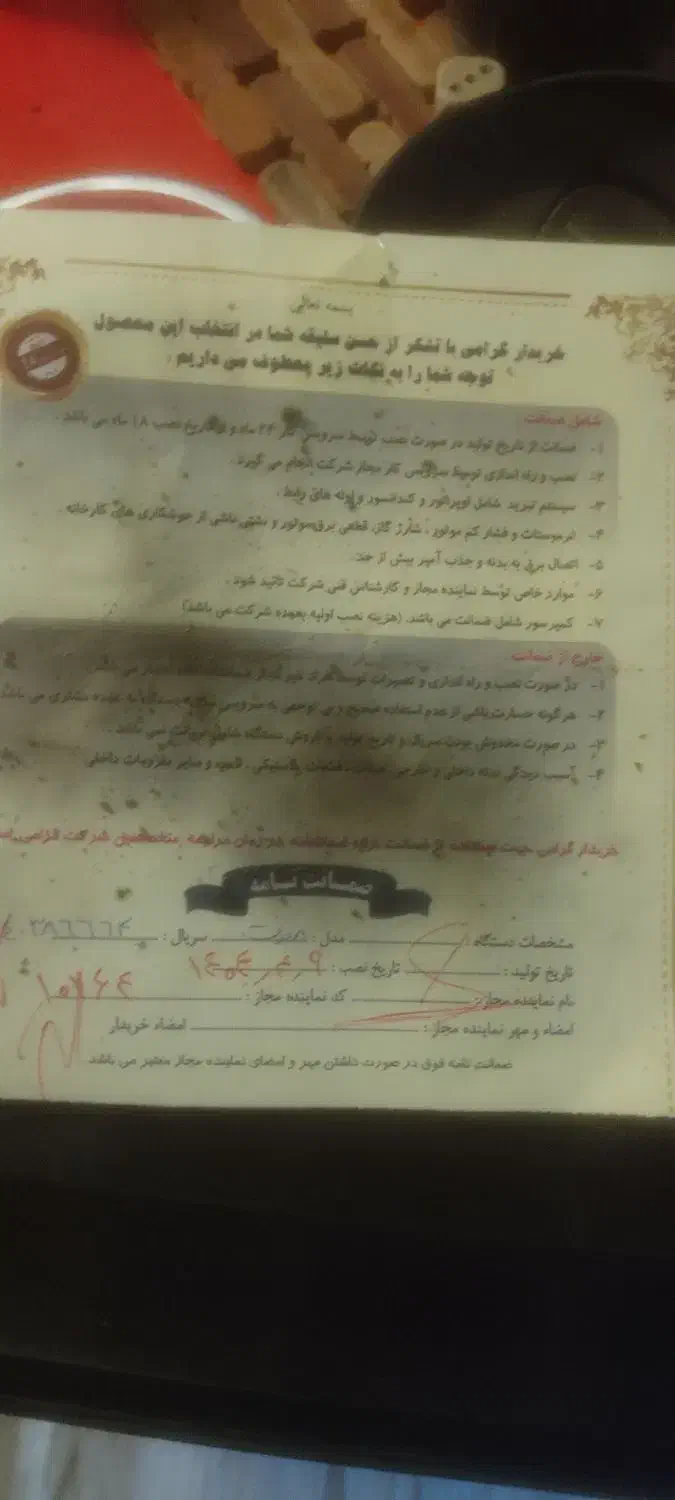 بسمه تعالی
خریدار گرامی با تشکر از حسن سلیقه شما در انتخاب این محصول
توجه شما را به نکات زیر معطوف می داریم .
شامل ضمانت
۱- ضمانت از تاریخ تولید در صورت نصب توسط سرویس کار ۲۴ ماه و از تاریخ نصب ۱۸ ماه می باشد .
۲- نصب و راه اندازی توسط سرویس کار مجاز شرکت انجام می گیرد .
۳- سیستم تبرید شامل اوپراتور و کندانسور و لوله های رابط .
۴- ترموستات و فشار کم موتور ، شارژ گاز، قطعی برق موتور و نشتی ناشی از جوشکاری های کارخانه .
۵- اتصال برق به بدنه و جذب آمپر بیش از حد .
۶- موارد خاص توسط نماینده مجاز و کارشناس فنی شرکت تائید شود .
۷- کمپرسور شامل ضمانت می باشد. (هزینه نصب اولیه بعهده شرکت می باشد)
خارج از ضمانت
۱- در صورت نصب و راه اندازی و تعمیرات توسط افراد غیر
۲- هرگونه خسارت ناشی از عدم استفاده صحیح و بی توجهی به سرویس به عهده مشتری می باشد
۳- در صورت مخدوش بودن سریال و تاریخ تولید یا فروش دستگاه نمی باشد .
۴- آسیب دیدگی بدنه داخلی و خارجی، قطعات پلاستیکی ، لامپ و سایر ملزومات داخلی
خریدار گرامی جهت استفاده از ضمانت ارائه ضمانتنامه در زمان مراجعه متخصصین شرکت الزامی است
ضمانت نامه
مشخصات دستگاه : مدل : سریال : ۳۸۶۶۶۴
تاریخ تولید : تاریخ نصب : ۱۴۰۴,۴,۹
نام نماینده مجاز : کد نماینده مجاز : ۱۰۷۶۴
امضاء و مهر نماینده مجاز : امضاء خریدار
ضمانت نامه فوق در صورت داشتن مهر و امضای نماینده مجاز معتبر می باشد